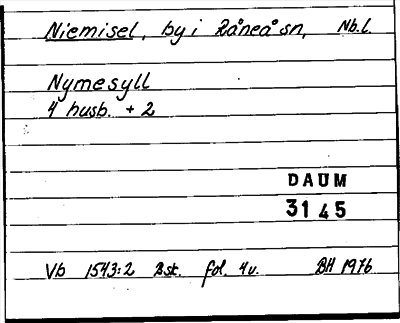 Niemisel, by i Råneå sn, Nb.l.
Nymesyll
4 husb. + 2
DAUM
3145
Vb 1543:2 Bst. fol. 4v. BH 1976